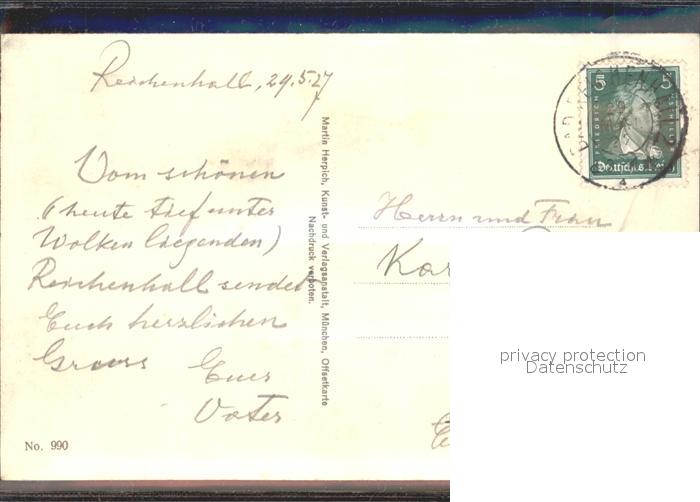 Reichenhall, 29.5.27
Vom schönen
(heute tief unter
Wolken liegenden)
Reichenhall sendet
Euch herzlichen
Gruss Euer
Vater
No. 990
Martin Herpich, Kunst- und Verlagsanstalt, München, Offsetkarte
Nachdruck verboten.
5 5
FRIEDRICH
Deutsches Reich
Herrn und Frau
Kar
privacy protection
Datenschutz